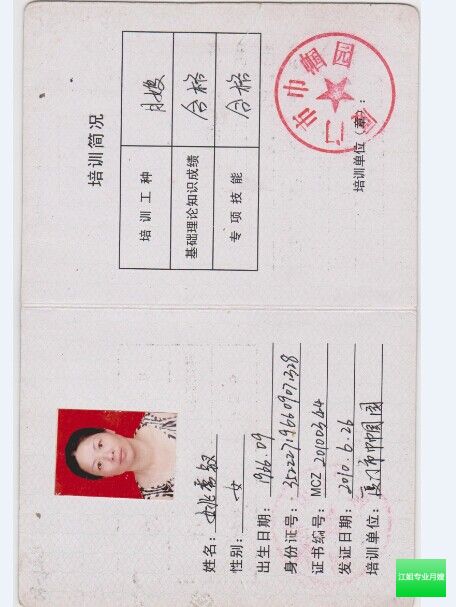 姓名：姚秀
性别：女
出生日期：1966.09
身份证号：352227196609071328
证书编号：MCZ 20100344
发证日期：2010.6.26
培训单位：厦门市巾帼园
培训简况
培训工种 月嫂
基础理论知识成绩 合格
专项技能 合格
培训单位（章）：
厦门市巾帼园
江姐专业月嫂